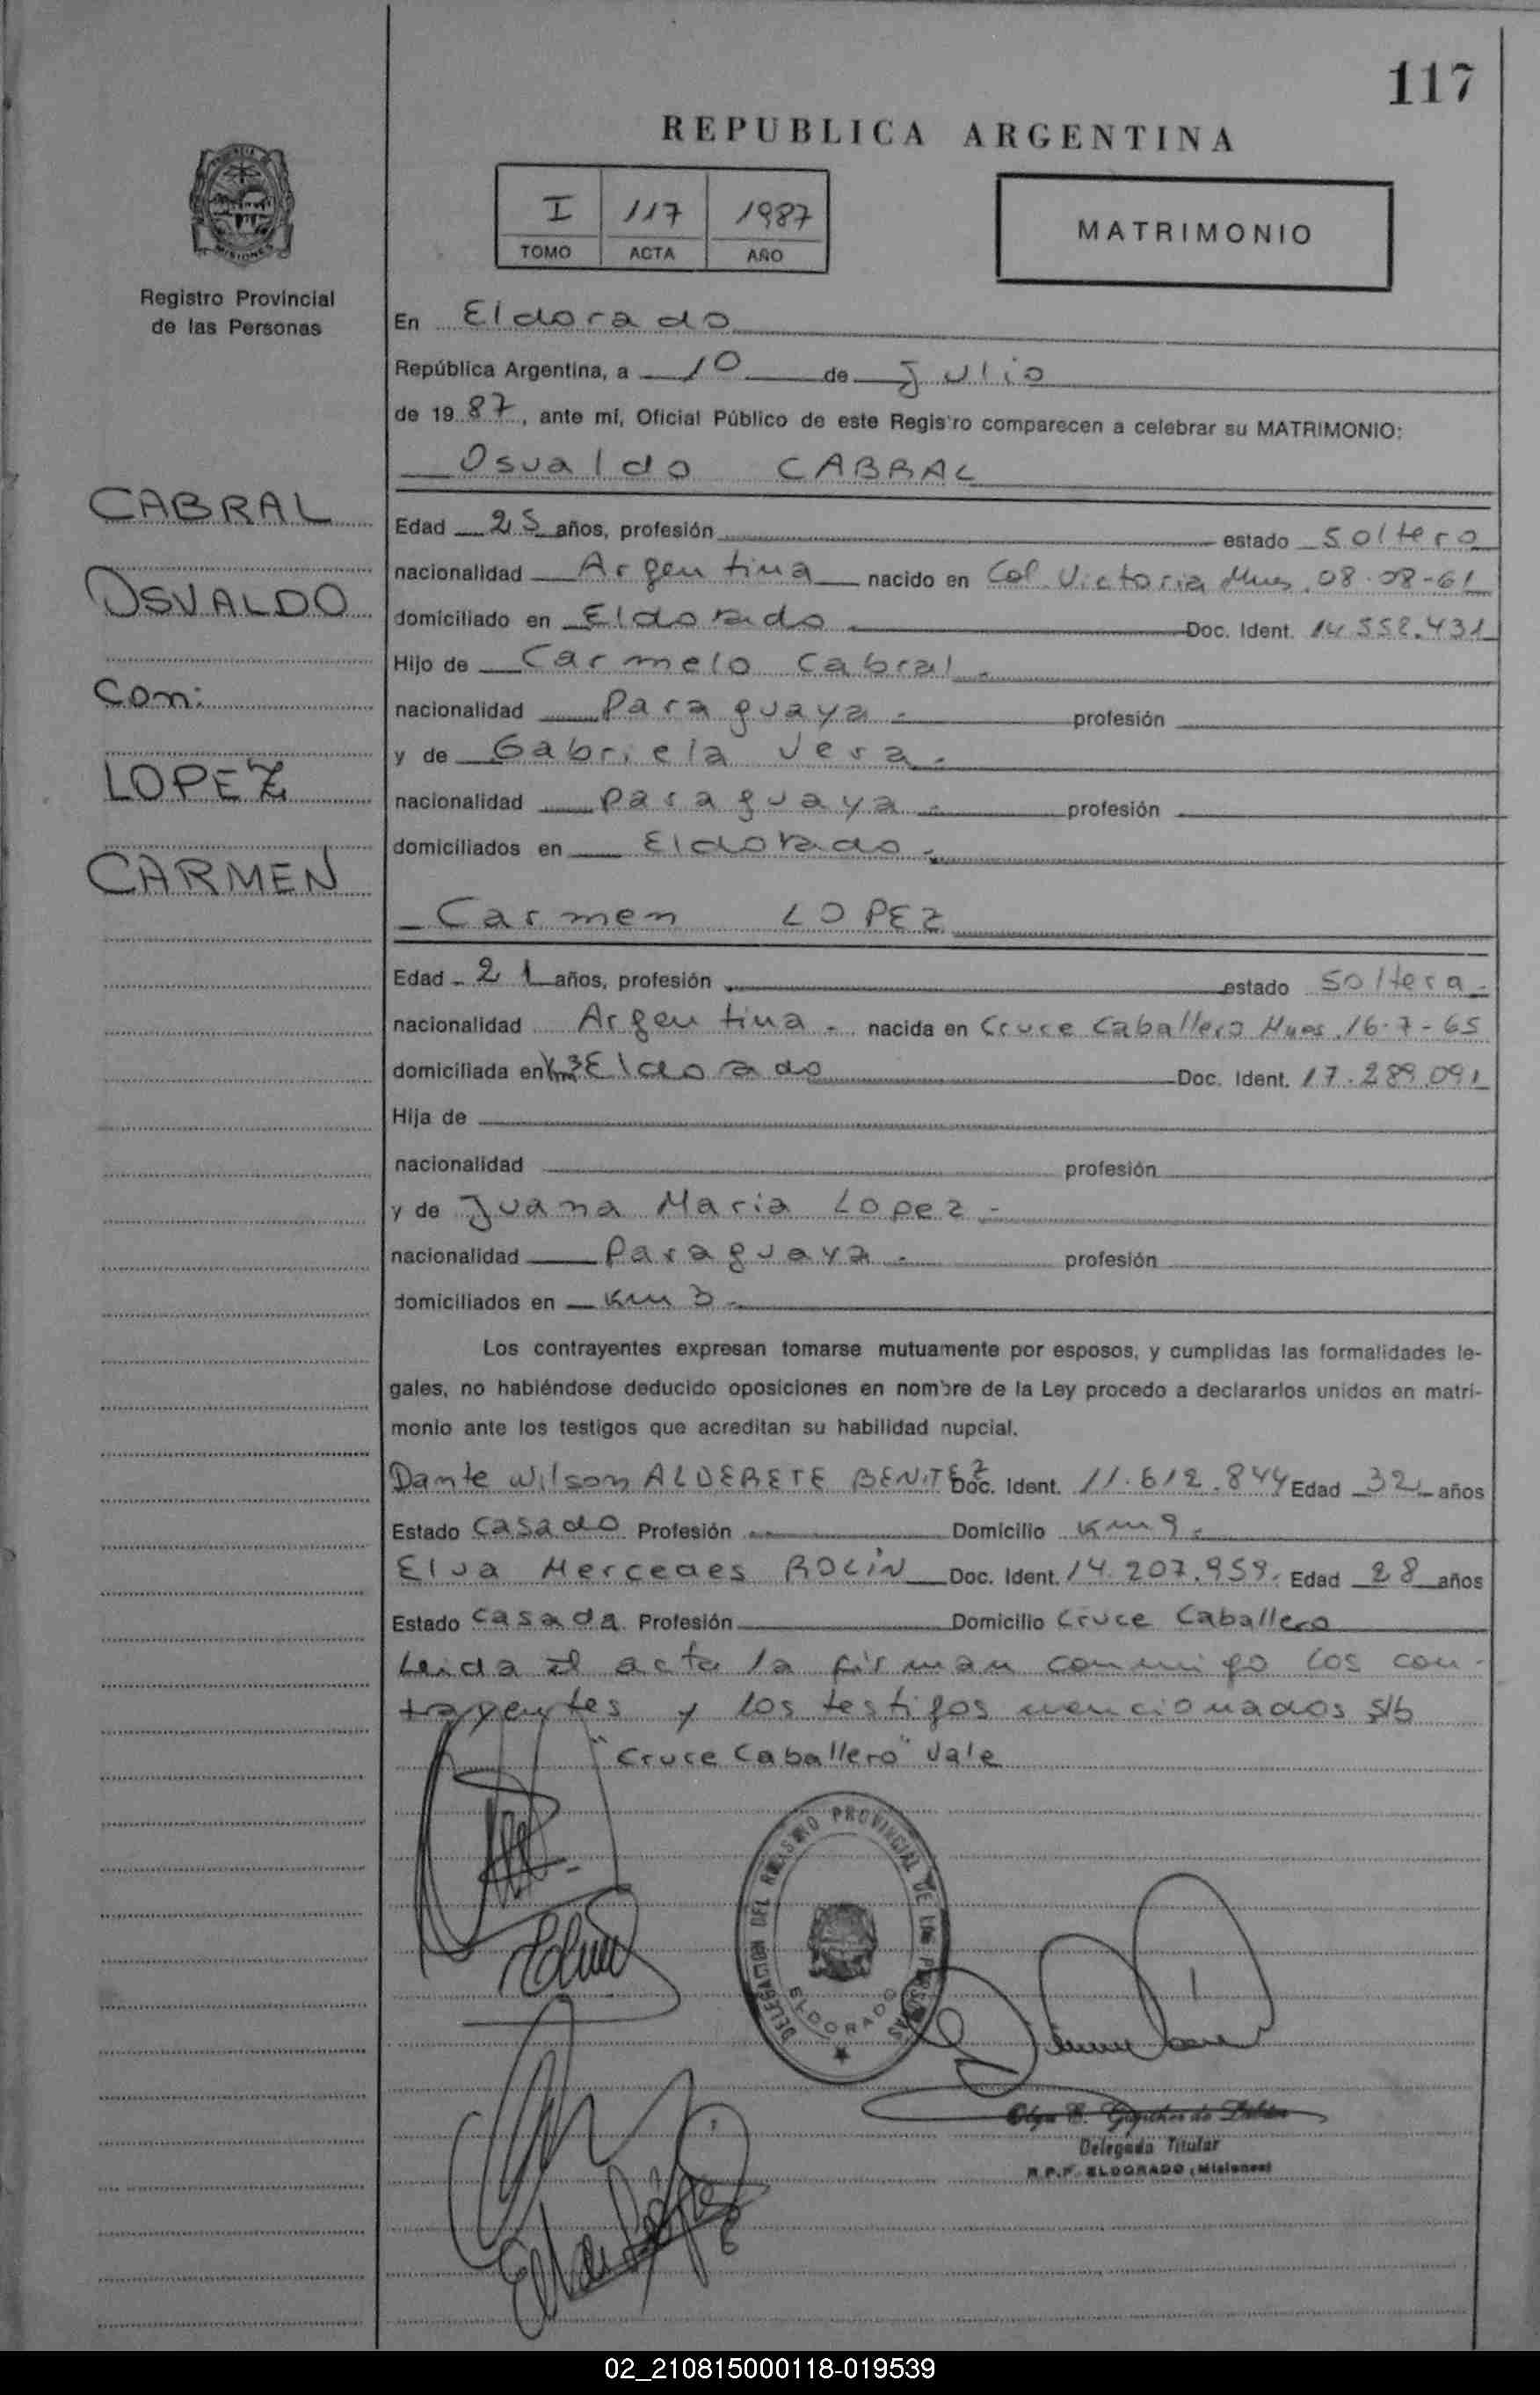 117
REPUBLICA ARGENTINA
I 117 1987
TOMO ACTA AÑO
MATRIMONIO
Registro Provincial
de las Personas
CABRAL
OSVALDO
Con:
LOPEZ
CARMEN
En Eldorado
República Argentina, a 10 de Julio
de 1987, ante mí, Oficial Público de este Registro comparecen a celebrar su MATRIMONIO:
Osvaldo CABRAL
Edad 25 años, profesión estado Soltero
nacionalidad Argentina nacido en Col. Victoria Mnes 08-08-61
domiciliado en Eldorado Doc. Ident. 14.558.431
Hijo de Carmelo Cabral.
nacionalidad Paraguaya. profesión
y de Gabriela Vera.
nacionalidad Paraguaya. profesión
domiciliados en Eldorado.
Carmen LOPEZ
Edad 21 años, profesión estado Soltera.
nacionalidad Argentina. nacida en Cruce Caballero Mnes 16-7-65
domiciliada en Km 3 Eldorado Doc. Ident. 17.289.091
Hija de
nacionalidad profesión
y de Juana Maria Lopez.
nacionalidad Paraguaya. profesión
domiciliados en Km 3.
Los contrayentes expresan tomarse mutuamente por esposos, y cumplidas las formalidades le-
gales, no habiéndose deducido oposiciones en nombre de la Ley procedo a declararlos unidos en matri-
monio ante los testigos que acreditan su habilidad nupcial.
Dante Wilson ALDERETE BENITEZ Doc. Ident. 11.612.844 Edad 32 años
Estado Casado Profesión Domicilio Km 9.
Elva Mercedes ROLÍN Doc. Ident. 14.207.959. Edad 28 años
Estado Casada Profesión Domicilio Cruce Caballero
Leida el acta la firman conmigo los con-
trayentes y los testigos mencionados s/b
"Cruce Caballero" Vale
DELEGACION DEL REGISTRO PROVINCIAL DE LAS PERSONAS
ELDORADO
Delegada Titular
R.P.P. ELDORADO (Misiones)
02_210815000118-019539